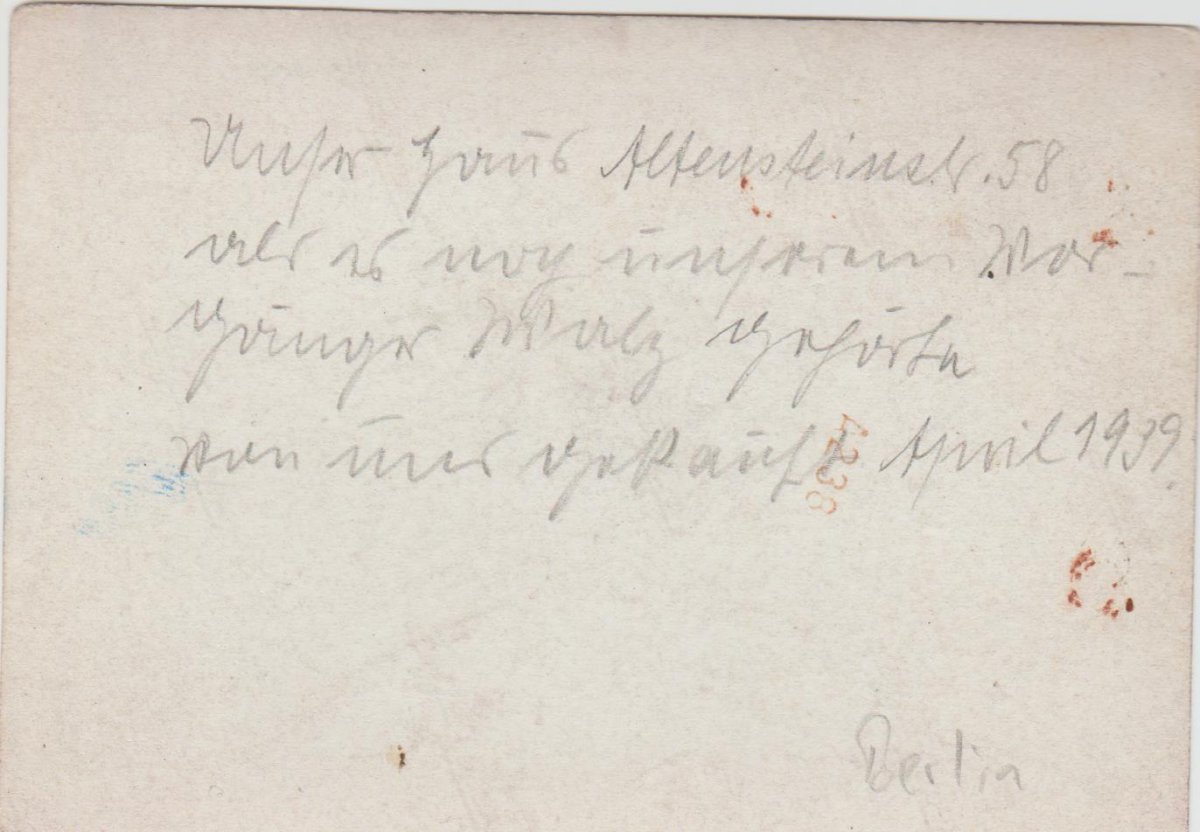 Unser Haus Altensteinstr. 58
als es noch unserem Vor-
gänger Walz gehörte
von uns gekauft April 1939.
4238
Berlin